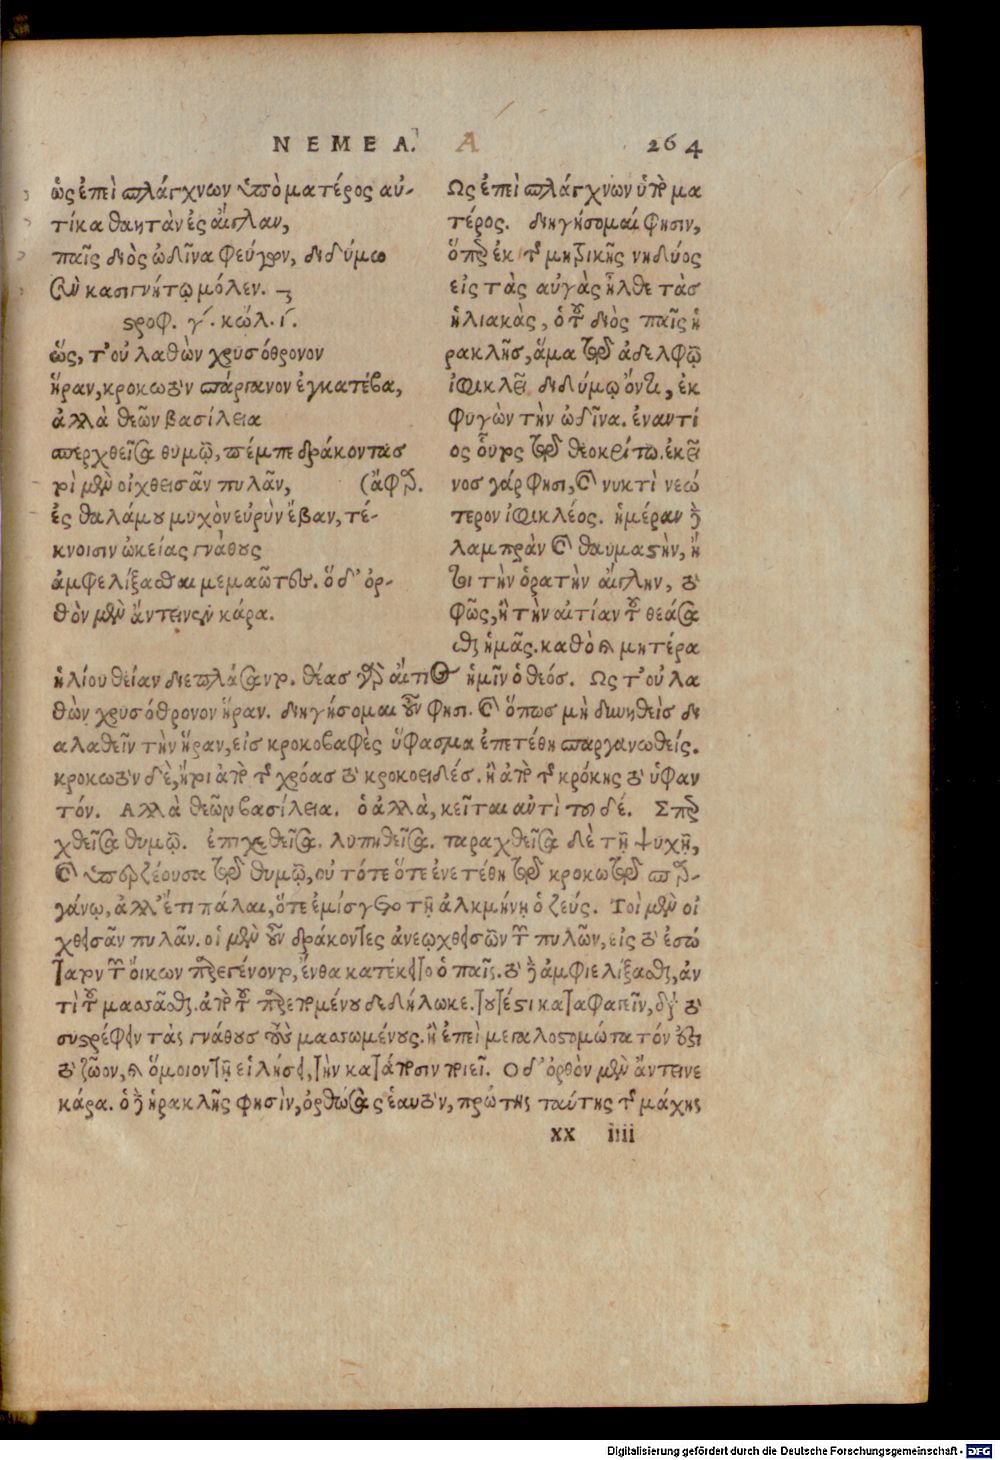 ΝΕΜΕΑ. Α 264
ὡς ἐπεὶ σπλάγχνων ὑπὸ ματέρος αὐ-
τίκα θαητὰν ἐς αἴγλαν,
παῖς διὸς ὠδῖνα φεύγων, διδύμω
σὺν κασιγνήτῳ μόλεν.
στροφ. γ΄. κώλ. ι΄.
ὥς, τ' οὐ λαθὼν χρυσόθρονον
ἥραν, κροκωτὸν σπάργανον ἐγκατέβα,
ἀλλὰ θεῶν βασίλεια
σπερχθεῖσα θυμῷ, πέμπε δράκοντας
τοὶ μὲν οἰχθεισᾶν πυλᾶν, (ἄφαρ.
ἐς θαλάμου μυχὸν εὐρὺν ἔβαν, τέ-
κνοισιν ὠκείας γνάθους
ἀμφελίξασθαι μεμαῶτες. ὅδ' ὀρ-
θὸν μὲν ἄντεινεν κάρα.
Ὡς ἐπεὶ σπλάγχνων ὑπὸ μα
τέρος. διηγήσομαί φησιν,
ὅπως ἐκ τῆς μητρικῆς νηδύος
εἰς τὰς αὐγὰς ἦλθε τὰς
ἡλιακὰς, ὁ τοῦ διὸς παῖς ἡ
ρακλῆς, ἅμα τῷ ἀδελφῷ
ἰφικλεῖ διδύμῳ ὄντι, ἐκ
φυγὼν τὴν ὠδῖνα. ἐναντί
ος οὗτος τῷ θεοκρίτω. ἐκεῖ
νος γάρ φησι, καὶ νυκτὶ νεώ
τερον ἰφικλέος. ἡμέραν δὲ
λαμπρὰν καὶ θαυμαστὴν, ἤ
τοι τὴν ὁρατὴν αἴγλην, τὸ
φῶς, ἢ τὴν αἰτίαν τοῦ θεάσα
σθαι ἡμᾶς. καθὸ καὶ μητέρα
ἡλίου θείαν διεπλάσαντο. θέας γὰρ αἴτιος ἡμῖν ὁ θεός. Ὡς τ' οὐ λα
θὼν χρυσόθρονον ἥραν. διηγήσομαι οὖν φησι. καὶ ὅπως μὴ δυνηθεὶς δι
αλαθεῖν τὴν ἥραν, εἰς κροκοβαφὲς ὕφασμα ἐπετέθη σπαργανωθείς.
κροκωτὸν δὲ, ἤτοι ἀπὸ τῆς χρόας τὸ κροκοειδές. ἢ ἀπὸ τῆς κρόκης τὸ ὑφαν
τόν. Ἀλλὰ θεῶν βασίλεια. ὁ ἀλλὰ, κεῖται ἀντὶ τοῦ δέ. Σπερ
χθεῖσα θυμῷ. ἐπιχεθεῖσα. λυπηθεῖσα. ταραχθεῖσα δὲ τῇ ψυχῇ,
καὶ ὑπερζέουσα τῷ θυμῷ, οὐ τότε ὅτε ἐνετέθη τῷ κροκωτῷ σπαρ-
γάνῳ, ἀλλ' ἔτι πάλαι, ὅτε ἐμίσγετο τῇ ἀλκμήνῃ ὁ ζεύς. Τοὶ μὲν οἰ
χθεισᾶν πυλᾶν. οἱ μὲν οὖν δράκοντες ἀνεῳχθεισῶν τῶν πυλῶν, εἰς τὸ ἐσώ
τατον τῶν οἴκων παρεγένοντο, ἔνθα κατέκειτο ὁ παῖς. τὸ δὲ ἀμφιελίξασθαι, ἀν
τὶ τοῦ μασᾶσθαι. ἀπὸ τοῦ παρεπομένου δεδήλωκε. τουτέστι καταφαγεῖν, διὰ τὸ
συστρέφειν τὰς γνάθους τοὺς μασωμένους. ἢ ἐπεὶ μεγαλοστομώτατόν ἐστι
τὸ ζῶον, καὶ ὅμοιον τῇ εἱλήσει, τὴν κατάποσιν ποιεῖ. Ὁ δ' ὀρθὸν μὲν ἄντεινε
κάρα. ὁ δὲ ἡρακλῆς φησὶν, ὀρθώσας ἑαυτὸν, πρώτης ταύτης τῆς μάχης
xx iiii
Digitalisierung gefördert durch die Deutsche Forschungsgemeinschaft - DFG